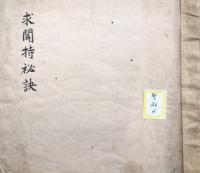 求聞持秘訣